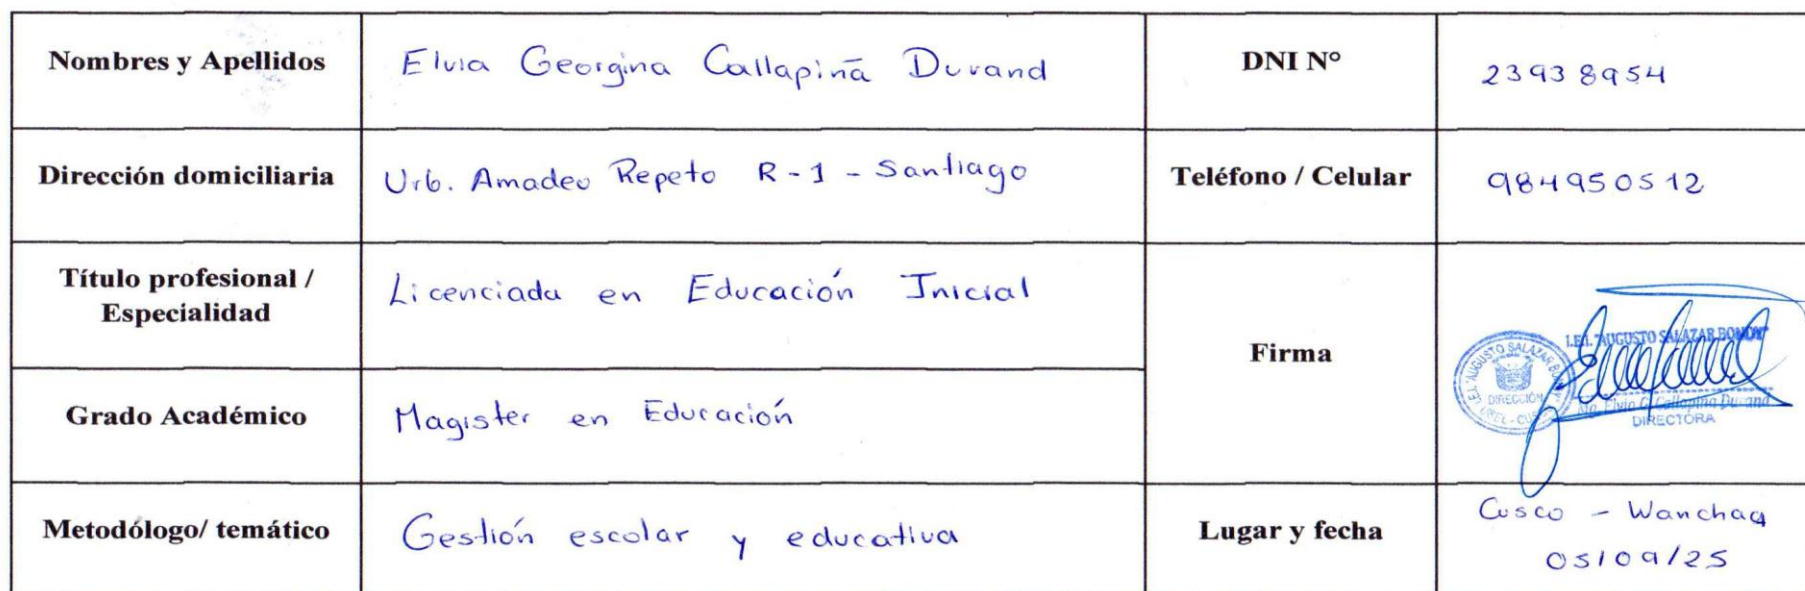 Nombres y Apellidos
Elvia Georgina Callapiña Durand
DNI N°
23938954
Dirección domiciliaria
Urb. Amadeo Repeto R-1 - Santiago
Teléfono / Celular
984950512
Título profesional /
Especialidad
Licenciada en Educación Inicial
Firma
I.E.I. "AUGUSTO SALAZAR BONDY"
I.E.I. "AUGUSTO SALAZAR BONDY"
DIRECCIÓN
Elvia G. Callapiña Durand
DIRECTORA
Grado Académico
Magister en Educación
Metodólogo/ temático
Gestión escolar y educativa
Lugar y fecha
Cusco - Wanchaq
05/09/25